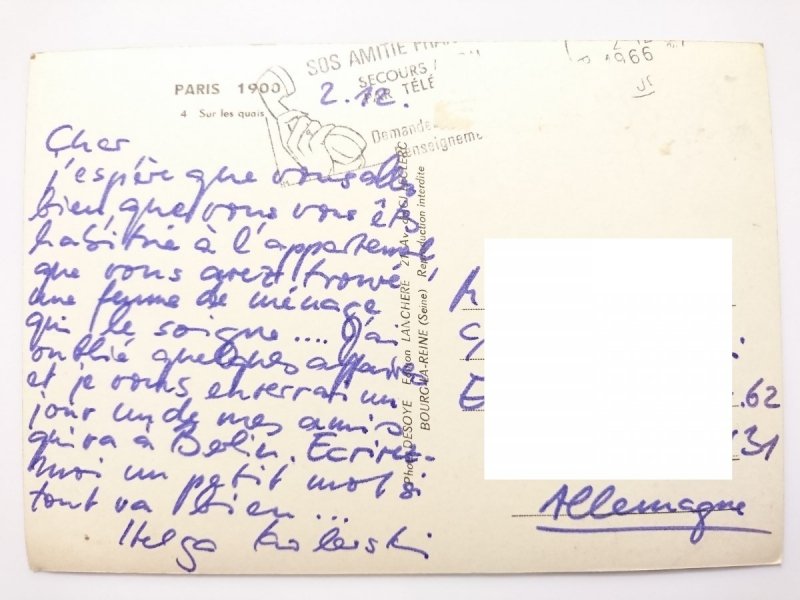 PARIS 1900
4 Sur les quais
SOS AMITIE FRAN
SECOURS
PAR TÉLÉ
Demande
enseigneme
1966
2.12.
Cher
j'espère que vous allez
bien, que vous vous êtes
habitué à l'appartement
que vous avez trouvé
une femme de ménage
qui le soigne.... J'ai
oublié quelques affaires
et je vous enverrai un
jour un de mes amis
qui va à Berlin. Ecrivez-
moi un petit mot si
tout va bien...
Helga
Photo DESOYE Edition LANCHERE
BOURG-LA-REINE (Seine) Reproduction interdite
62
31
Allemagne